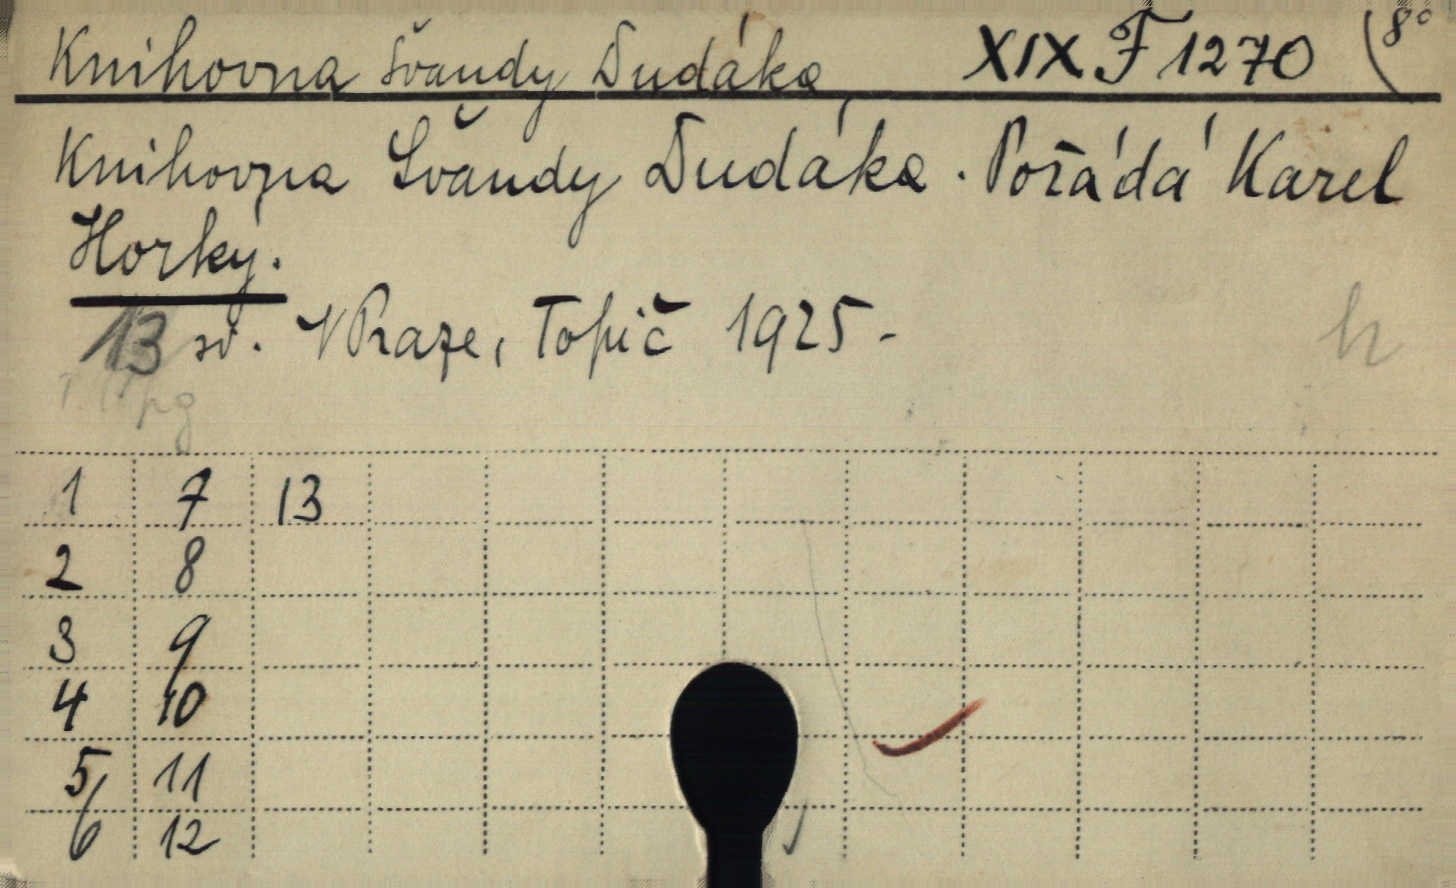 Knihovna Švandy Dudáka XIX F 1270 (8°
Knihovna Švandy Dudáka. Pořádá Karel
Horký.
13 sv. V Praze, Topič 1925-
h
pg
1 7 13
2 8
3 9
4 10
5 11
6 12